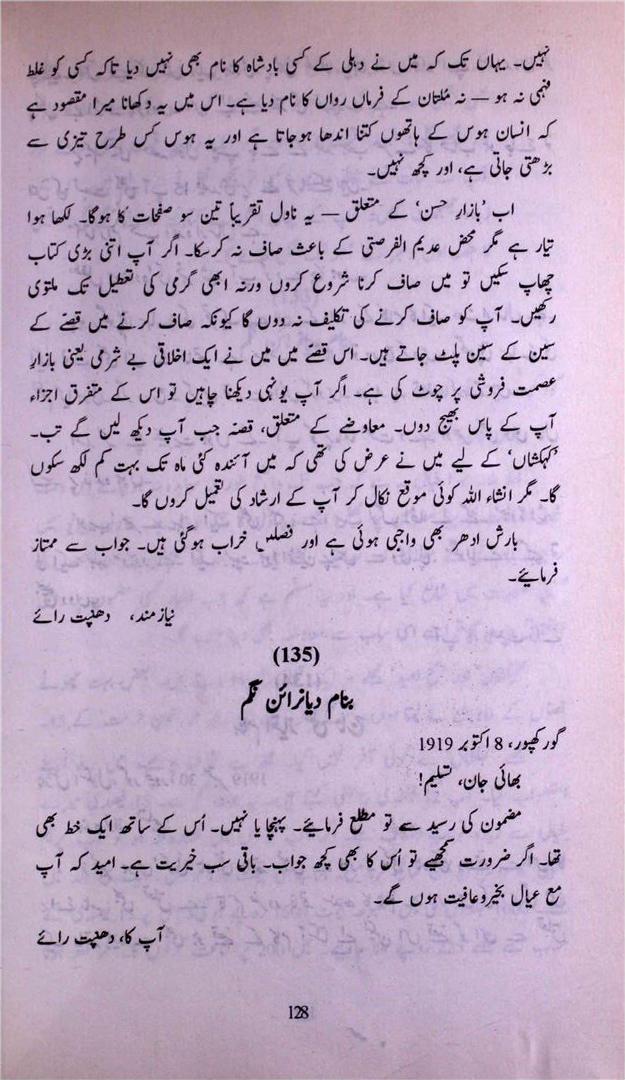 نہیں۔ یہاں تک کہ میں نے دہلی کے کسی بادشاہ کا نام بھی نہیں دیا تاکہ کسی کو غلط
فہمی نہ ہو — نہ مُلتان کے فرماں رواں کا نام دیا ہے۔ اس میں یہ دکھانا میرا مقصود ہے
کہ انسان ہوس کے ہاتھوں کتنا اندھا ہوجاتا ہے اور یہ ہوس کس طرح تیزی سے
بڑھتی جاتی ہے، اور کچھ نہیں۔
اب ’بازارِ حسن‘ کے متعلق — یہ ناول تقریباً تین سو صفحات کا ہوگا۔ لکھا ہوا
تیار ہے مگر محض عدیم الفرصتی کے باعث صاف نہ کرسکا۔ اگر آپ اتنی بڑی کتاب
چھاپ سکیں تو میں صاف کرنا شروع کروں ورنہ ابھی گرمی کی تعطیل تک ملتوی
رکھیں۔ آپ کو صاف کرنے کی تکلیف نہ دوں گا کیونکہ صاف کرنے میں قصّے کے
سین کے سین پلٹ جاتے ہیں۔ اس قصّے میں میں نے ایک اخلاقی بے شرمی یعنی بازارِ
عصمت فروشی پر چوٹ کی ہے۔ اگر آپ یونہی دیکھنا چاہیں تو اس کے متفرق اجزاء
آپ کے پاس بھیج دوں۔ معاوضے کے متعلق، قصّہ جب آپ دیکھ لیں گے تب۔
’کہکشاں‘ کے لیے میں نے عرض کی تھی کہ میں آئندہ کئی ماہ تک بہت کم لکھ سکوں
گا۔ مگر انشاء اللہ کوئی موقع نکال کر آپ کے ارشاد کی تعمیل کروں گا۔
بارش ادھر بھی واجبی ہوئی ہے اور فصلیں خراب ہوگئی ہیں۔ جواب سے ممتاز
فرمائیے۔
نیازمند، دھنپت رائے
(135)
بنام دیانرائن نگم
گورکھپور، 8 اکتوبر 1919
بھائی جان، تسلیم!
مضمون کی رسید سے تو مطلع فرمائیے۔ پہنچا یا نہیں۔ اُس کے ساتھ ایک خط بھی
تھا۔ اگر ضرورت سمجھیے تو اُس کا بھی کچھ جواب۔ باقی سب خیریت ہے۔ امید کہ آپ
مع عیال بخیروعافیت ہوں گے۔
آپ کا، دھنپت رائے
128